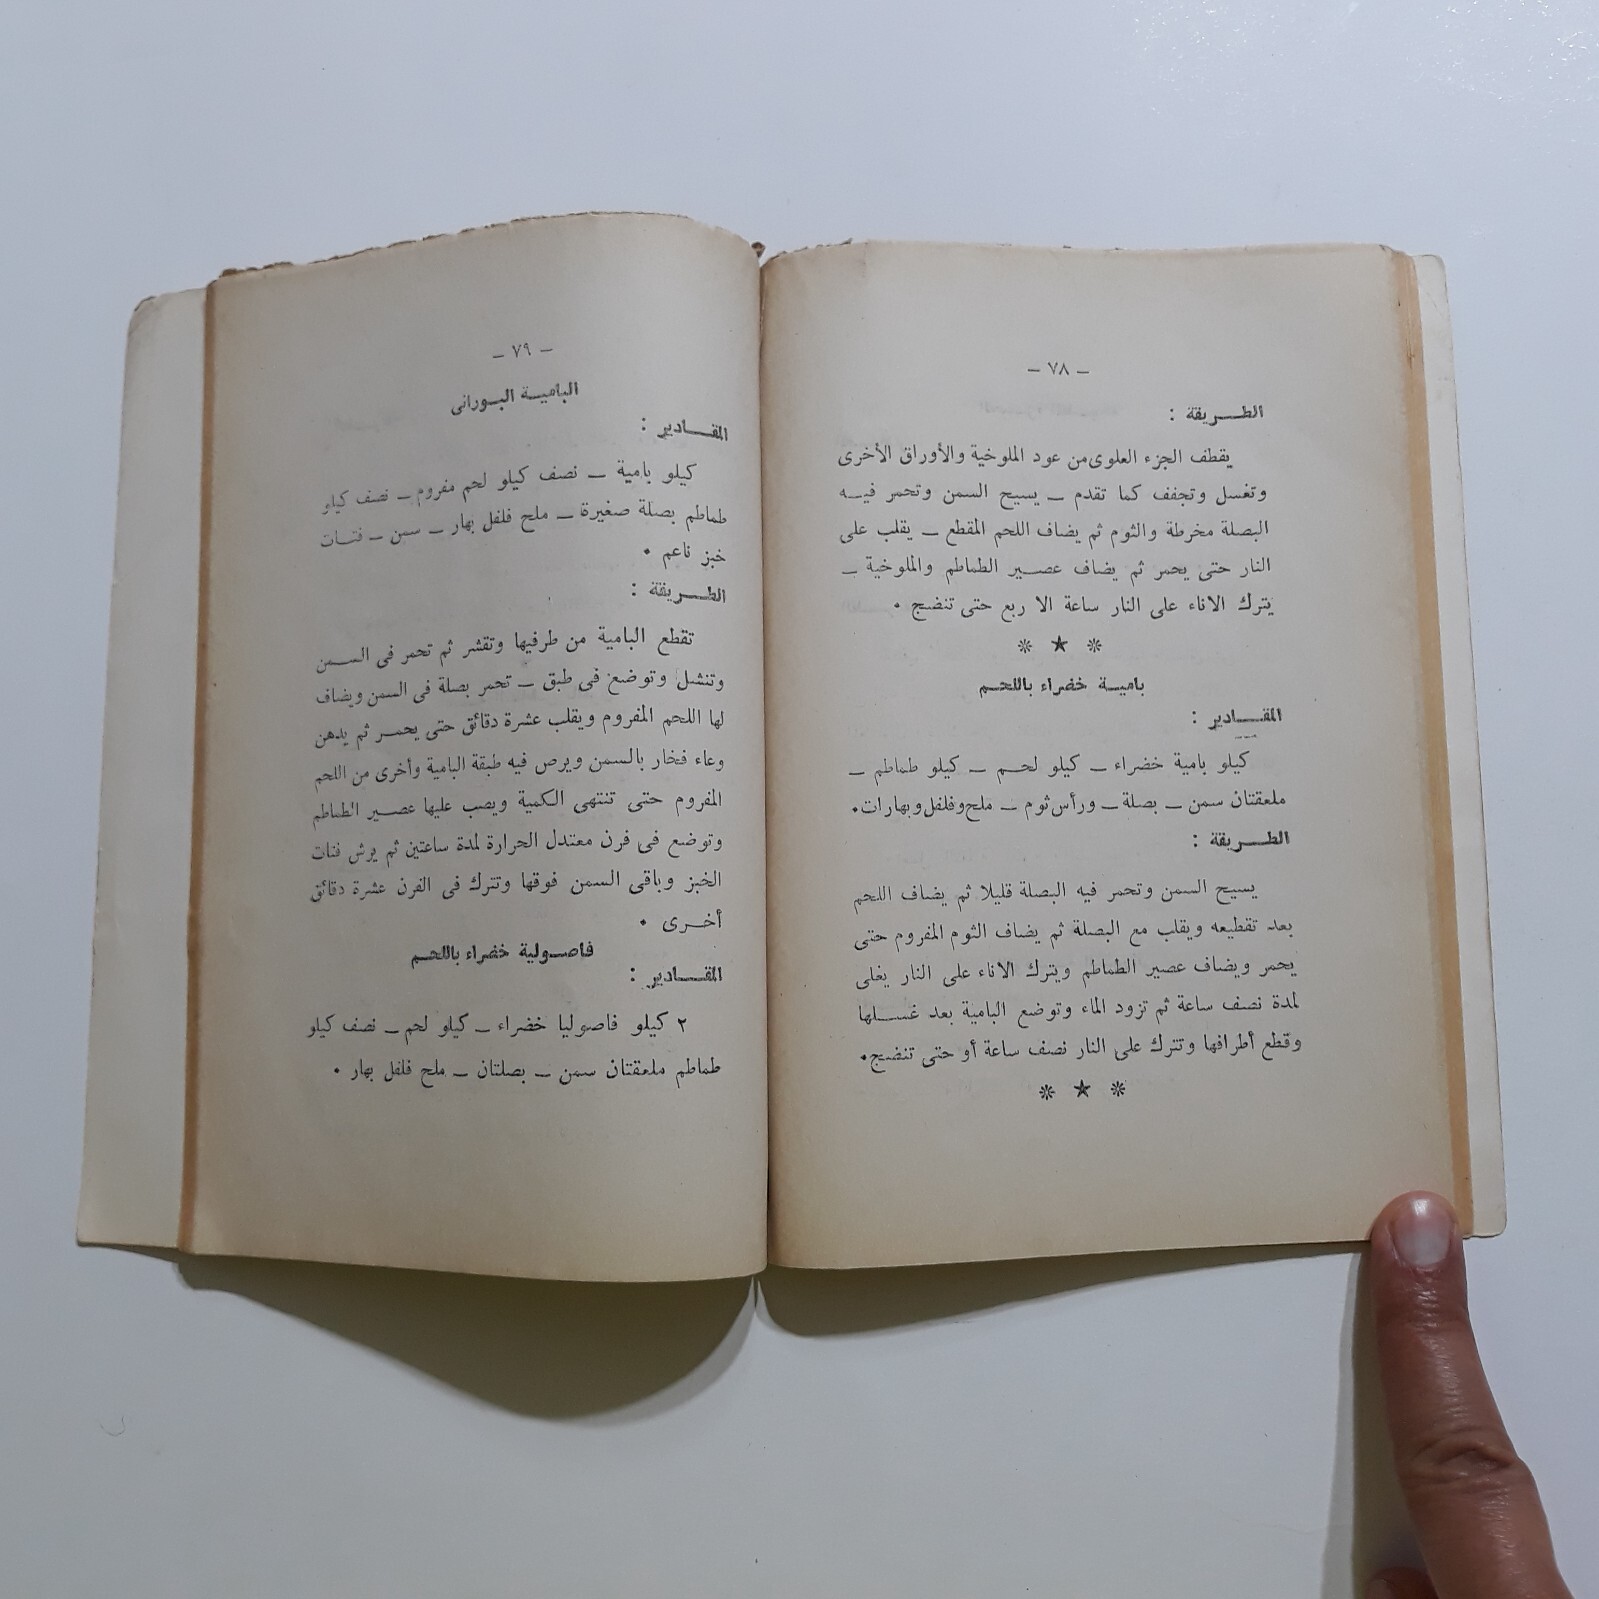 - ٧٨ -
الطريقة :
يقطف الجزء العلوى من عود الملوخية والأوراق الأخرى
وتغسل وتجفف كما تقدم - يسيح السمن وتحمر فيه
البصلة مخرطة والثوم ثم يضاف اللحم المقطع - يقلب على
النار حتى يحمر ثم يضاف عصير الطماطم والملوخية -
يترك الاناء على النار ساعة الا ربع حتى تنضج ٠
❊ ★ ❊
بامية خضراء باللحم
المقادير :
كيلو بامية خضراء - كيلو لحم - كيلو طماطم -
ملعقتان سمن - بصلة - ورأس ثوم - ملح وفلفل وبهارات٠
الطريقة :
يسيح السمن وتحمر فيه البصلة قليلا ثم يضاف اللحم
بعد تقطيعه ويقلب مع البصلة ثم يضاف الثوم المفروم حتى
يحمر ويضاف عصير الطماطم ويترك الاناء على النار يغلى
لمدة نصف ساعة ثم تزود الماء وتوضع البامية بعد غسلها
وقطع أطرافها وتترك على النار نصف ساعة أو حتى تنضج٠
❊ ★ ❊
- ٧٩ -
البامية البورانى
المقادير :
كيلو بامية - نصف كيلو لحم مفروم - نصف كيلو
طماطم بصلة صغيرة - ملح فلفل بهار - سمن - فتات
خبز ناعم ٠
الطريقة :
تقطع البامية من طرفيها وتقشر ثم تحمر فى السمن
وتنشل وتوضع فى طبق - تحمر بصلة فى السمن ويضاف
لها اللحم المفروم ويقلب عشرة دقائق حتى يحمر ثم يدهن
وعاء فخار بالسمن ويرص فيه طبقة البامية وأخرى من اللحم
المفروم حتى تنتهى الكمية ويصب عليها عصير الطماطم
وتوضع فى فرن معتدل الحرارة لمدة ساعتين ثم يرش فتات
الخبز وباقى السمن فوقها وتترك فى الفرن عشرة دقائق
أخرى ٠
فاصولية خضراء باللحم
المقادير :
٢ كيلو فاصوليا خضراء - كيلو لحم - نصف كيلو
طماطم ملعقتان سمن - بصلتان - ملح فلفل بهار ٠